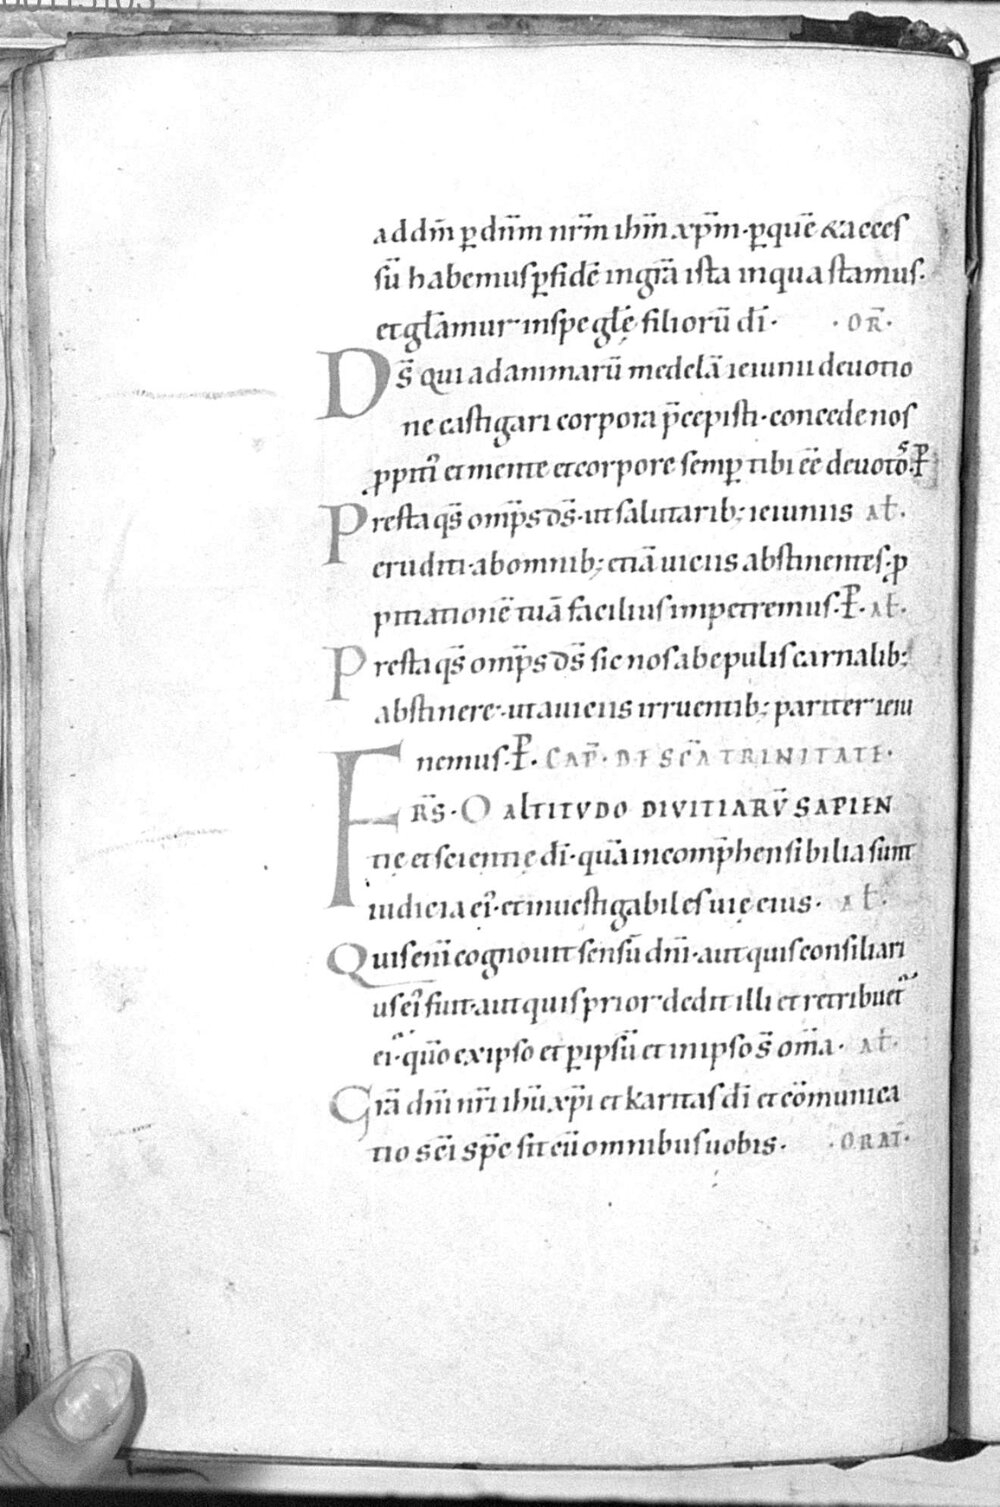 ad dm̄ ꝑ dn̄m nr̄m ihm̄ xp̄m · ꝑ quē & acces
sū habemus ꝑ fidē in gr̄a ista in qua stamus ·
et gl̄amur in spe gl̄ę filiorū dī · · OR̄ ·
Ds̄ qui ad animarū medelā ieiunii deuotio
ne castigari corpora p̄cepisti · concede nos
ꝓpiti᷒ et mente et corpore semꝑ tibi eē deuotos · P̄
Presta qs̄ omp̄s ds̄ · ut salutarib; ieiuniis al̄ ·
eruditi · ab omnib; etiā uiciis abstinentes · ꝓ
pitiationē tuā facilius impetremus · P̄ · al̄ ·
Presta qs̄ omp̄s ds̄ sic nos ab epulis carnalib;
abstinere · ut a uiciis irruentib; pariter ieiu
nemus · P̄ · CAP̄ · DE SC̄A TRINITATE ·
FR̄S · O ALTITVDO DIVITIARV̄ SAPIEN
tię et scientię dī · quā incomp̄hensibilia sunt
iudicia ei᷒ · et inuestigabiles uię eius · al̄ ·
Quis eni̅ cognouit sensū dn̄i · aut quis consiliari
us ei᷒ fuit · aut quis prior dedit illi et retribuet᷑
ei · qm̄o ex ipso et ꝑ ipsū et in ipso s̄ om̄a · al̄ ·
Gr̄a dn̄i nr̄i ihū xp̄i et karitas dī et cōmunica
tio sc̄i sp̄c sit cū omnibus uobis · · ORAT̄ ·